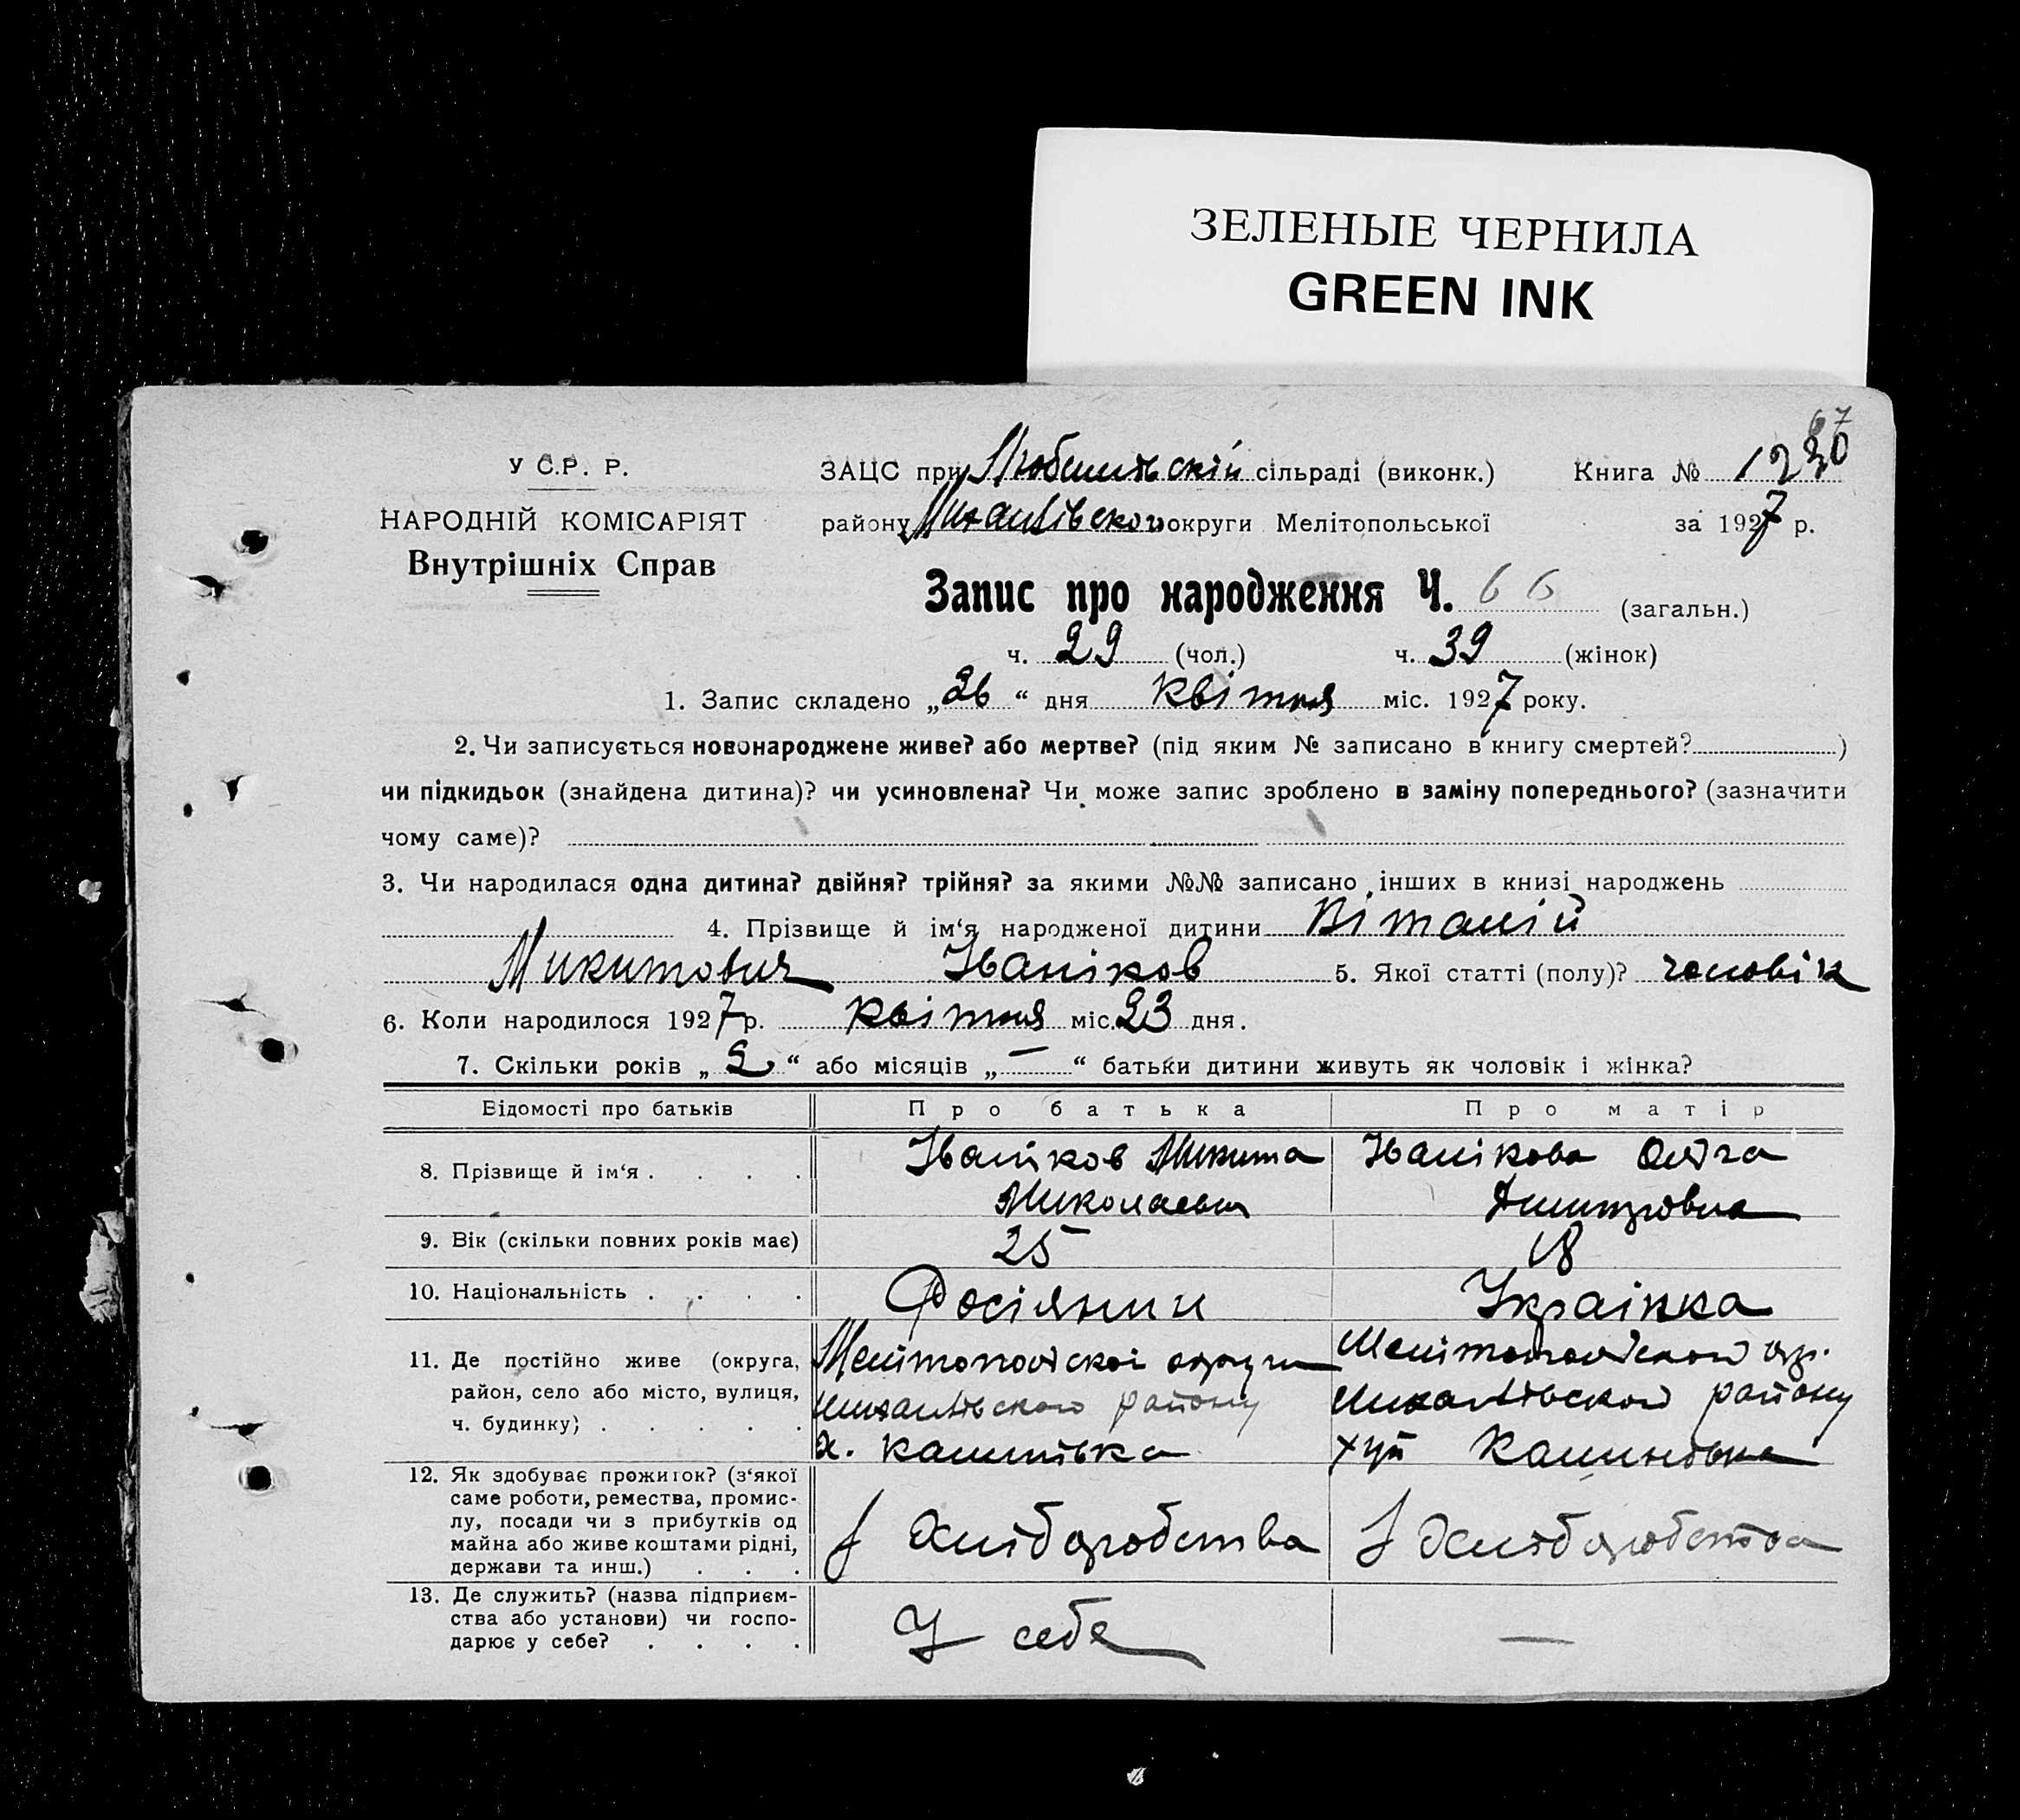 ЗЕЛЕНЫЕ ЧЕРНИЛА
GREEN INK
67
У С.Р. Р.
ЗАЦС при Любимівській сільраді (виконк.) Книга № 1230
НАРОДНІЙ КОМІСАРІЯТ
району Михайлівського округи Мелітопольської за 1927 р.
Внутрішніх Справ
Запис про народження Ч. 66 (загальн.)
ч. 29 (чол.) ч. 39 (жінок)
1. Запис складено „26“ дня квітня міс. 1927 року.
2. Чи записується новонароджене живе? або мертве? (під яким № записано в книгу смертей? )
чи підкидьок (знайдена дитина)? чи усиновлена? Чи може запис зроблено в заміну попереднього? (зазначити
чому саме)?
3. Чи народилася одна дитина? двійня? трійня? за якими №№ записано інших в книзі народжень
4. Прізвище й ім‘я народженої дитини Віталій
Микитович Іваніков 5. Якої статті (полу)? чоловік
6. Коли народилося 1927 р. квітня міс. 23 дня.
7. Скільки років „2“ або місяців „—“ батьки дитини живуть як чоловік і жінка?
Відомості про батьків Про батька Про матір
8. Прізвище й ім‘я . . . . Іваніков Микита Іванікова Ольга
Миколаевич Дмитровна
9. Вік (скільки повних років має) 25 18
10. Національність . . . . Росіянин Українка
11. Де постійно живе (округа, Мелітопольскоі округи Мелітопольскои окр.
район, село або місто, вулиця, Михайлівського району Михайлівськой району
ч. будинку) . . . . . х. Калинівка хут Калинівка
12. Як здобуває прожиток? (з‘якої
саме роботи, ремества, промис-
лу, посади чи з прибутків од
майна або живе коштами рідні, з Хліборобства з Хліборобства
держави та инш.) . . .
13. Де служить? (назва підприєм-
ства або установи) чи госпо- У себе —
дарює у себе? . . . .